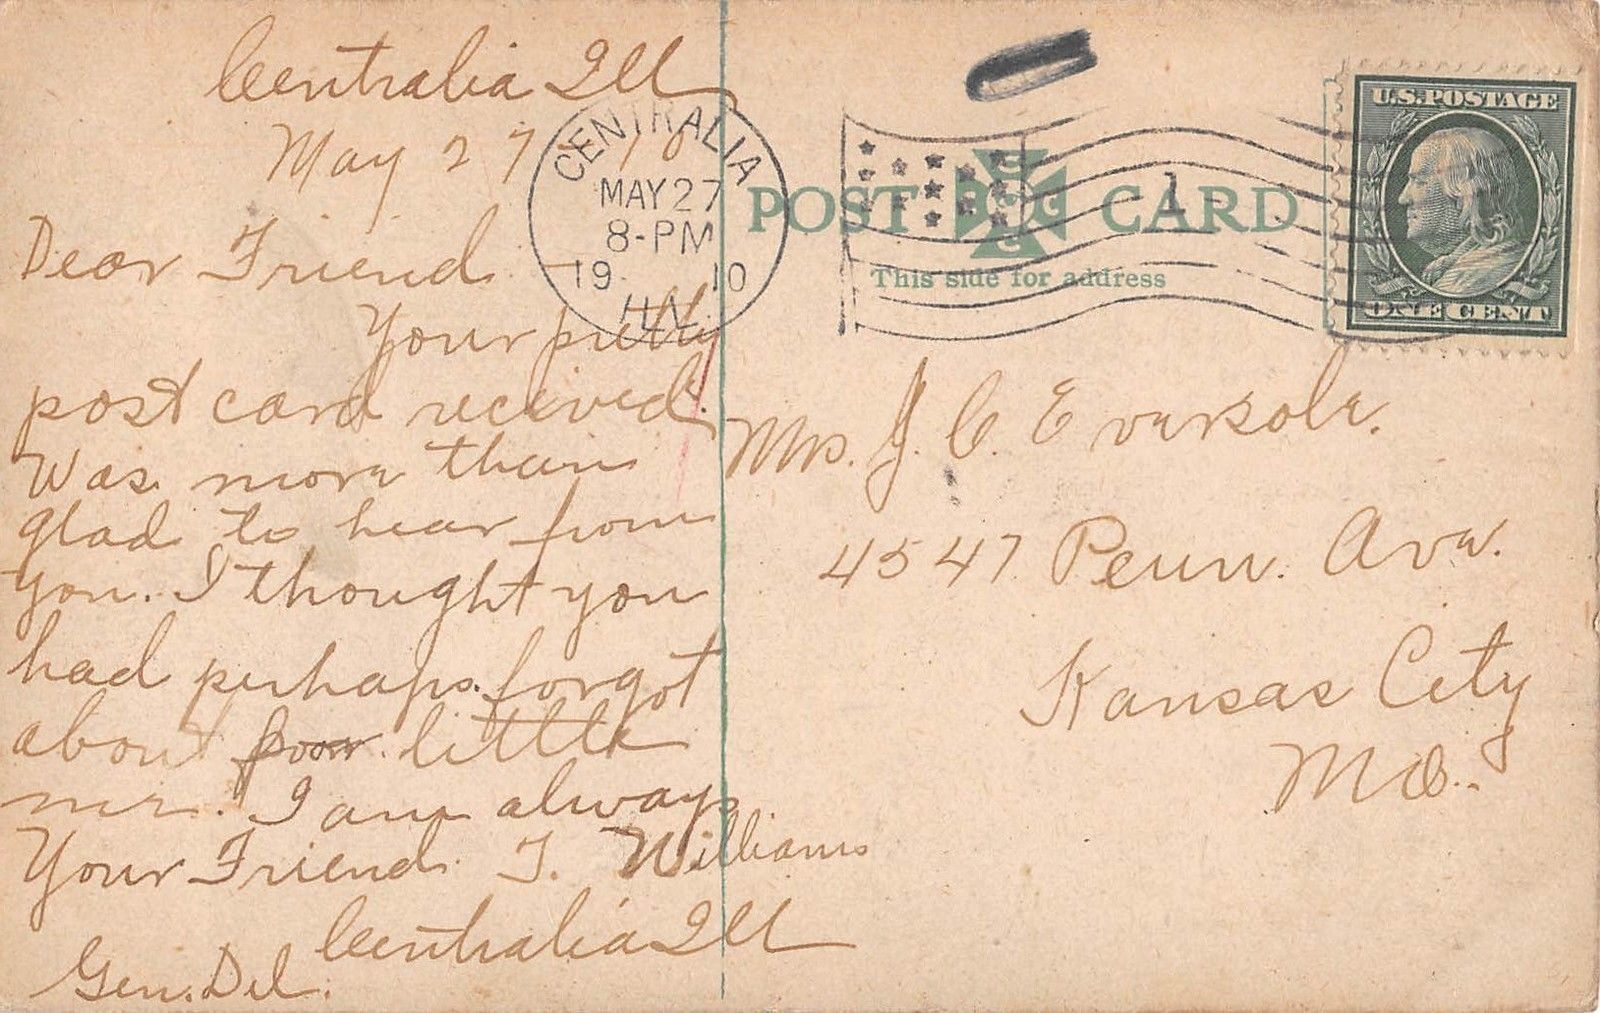 Centralia Ill
May 27 10
Dear Friend.
Your pretty
post card recived.
Was more than
glad to hear from
you. I thought you
had perhaps forgot
about poor little
me. I am always
Your Friend T. Williams
Centralia Ill
Gen. Del.
CENTRALIA
MAY 27
8-PM
1910
ILL.
POST CARD
This side for address
1
U.S. POSTAGE
ONE CENT
Mrs. J. C. Eversole.
4547 Penn. Ave.
Kansas City
Mo.